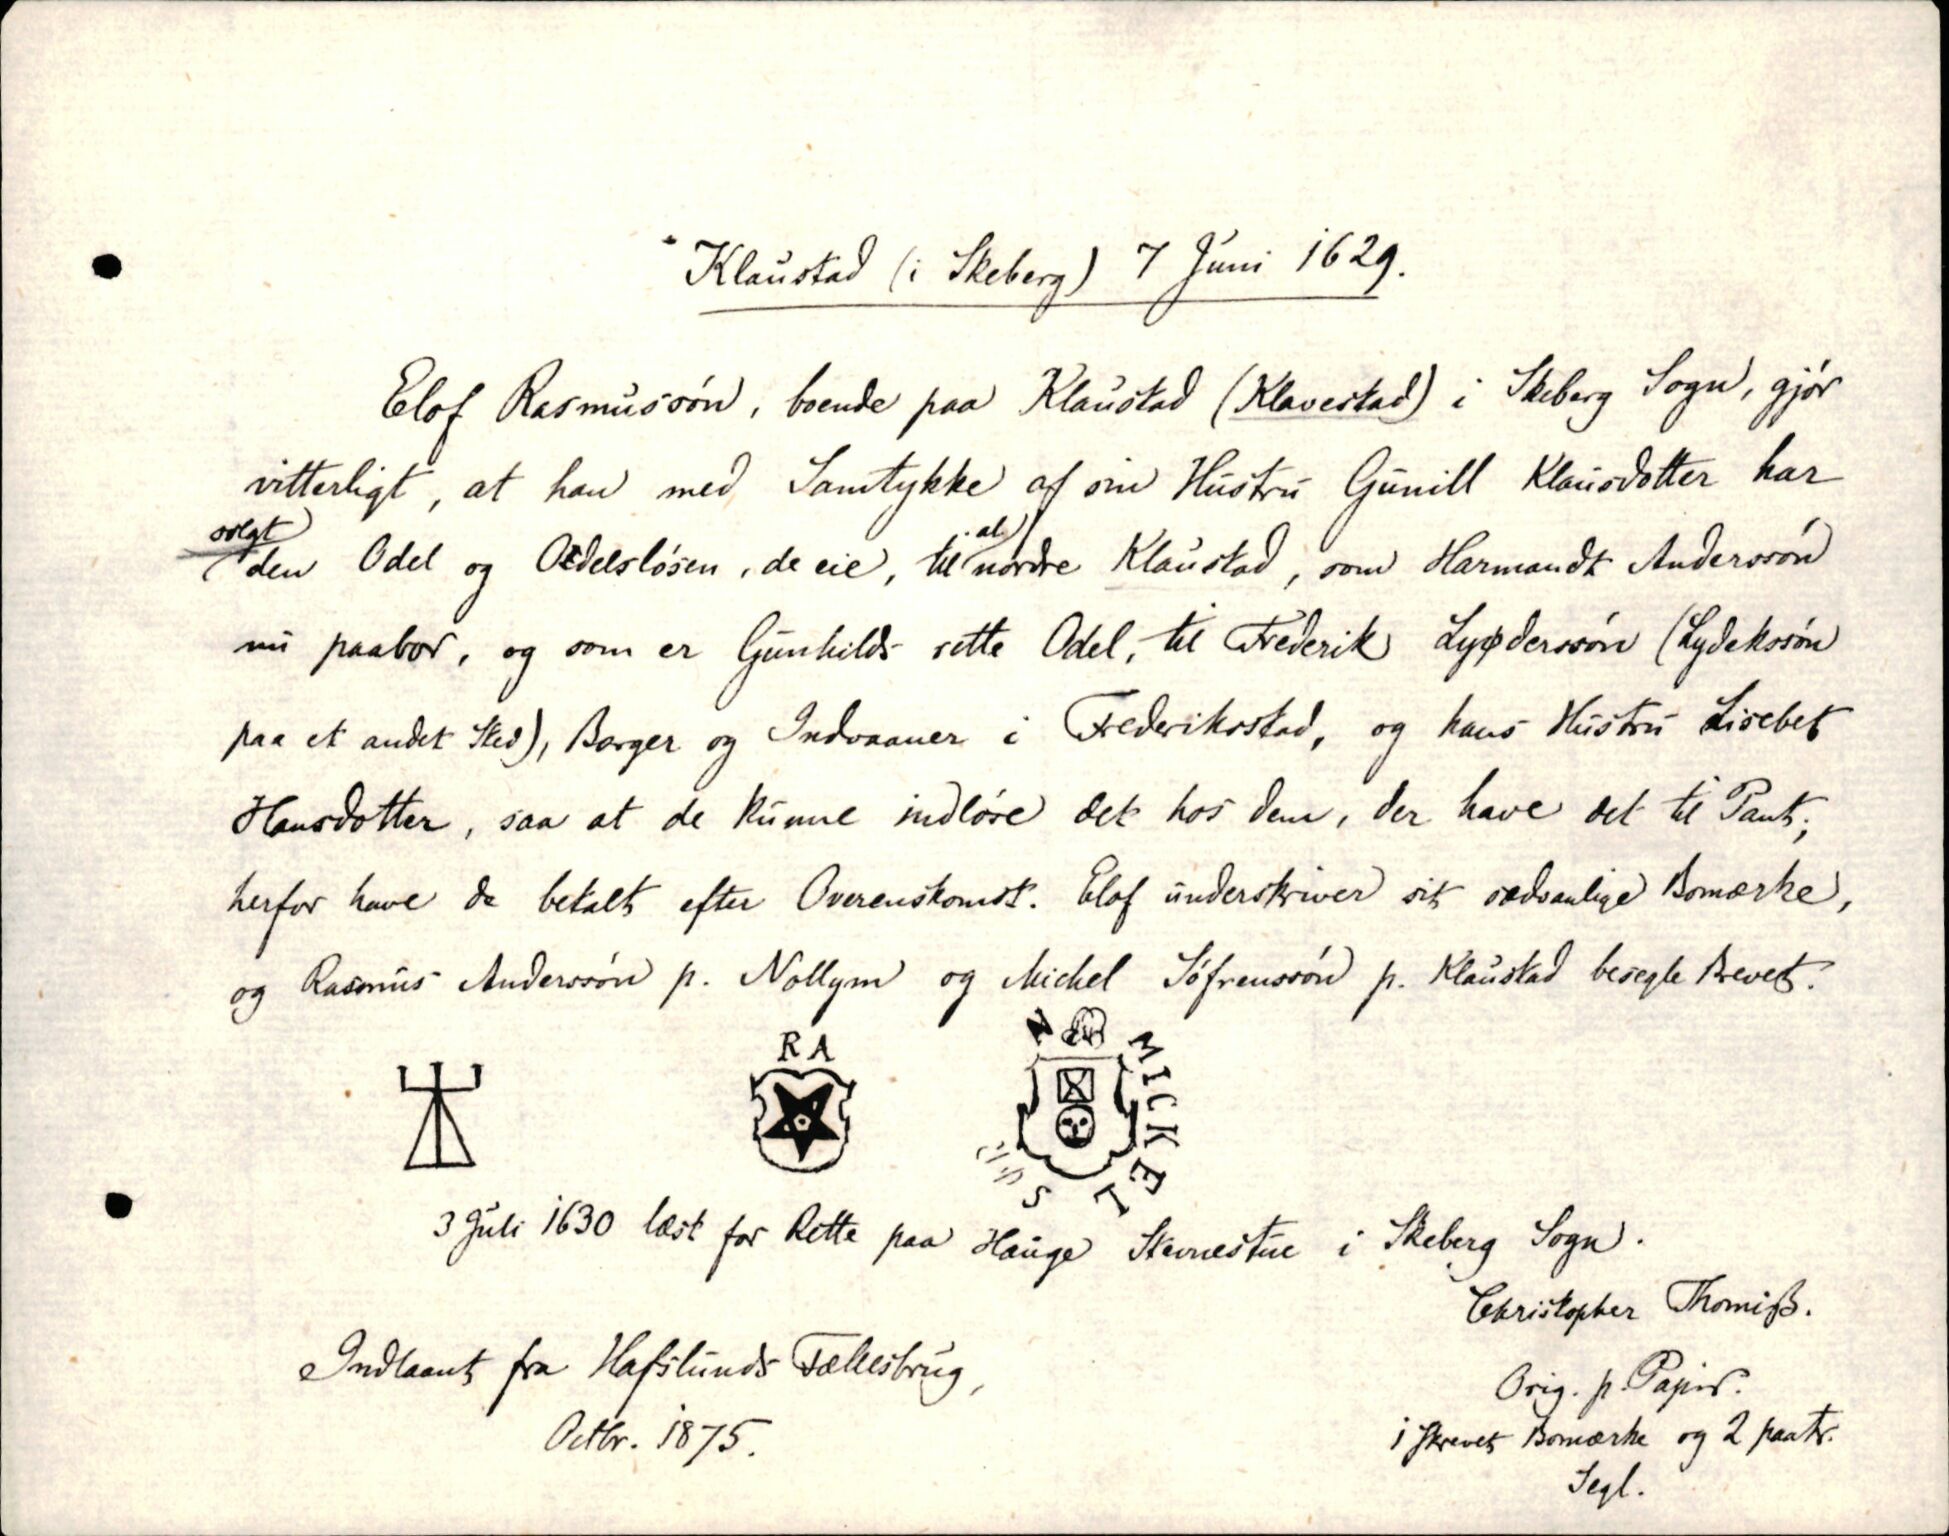 Klaustad (i Skeberg) 7 Juni 1629.
Elof Rasmussön, boende paa Klaustad (Klavestad) i Skeberg Sogn, gjör
vitterligt, at han med Samtykke af sin Hustru Gunill Klausdotter har
solgt
den Odel og Odelslösen, de eie, til nordre Klaustad, som Harmandt Anderssön
nu paabor, og som er Gunhilds rette Odel, til Frederik Lyøderssön (Lydekssön
paa et andet Sted), Borger og Indvaaner i Frederiksstad, og hans Hustru Lisebet
Hansdotter, saa at de kunne indlöse det hos dem, der have det til Pant;
herfor have de betalt efter Overenskomst. Elof underskriver sit sædvanlige Bomærke,
og Rasmus Anderssön p. Nollym og Michel Söfrenssön p. Klaustad besegle Brevet.
R A
MICKEL S
3 Juli 1630 læst for Rette paa Hauge Stevnestue i Skeberg Sogn.
Christopher Thomiß.
Indlaant fra Hafslunds Fællesbrug,
Octbr. 1875.
Orig. p. Papir.
1 skrevet Bomærke og 2 paatr.
Segl.